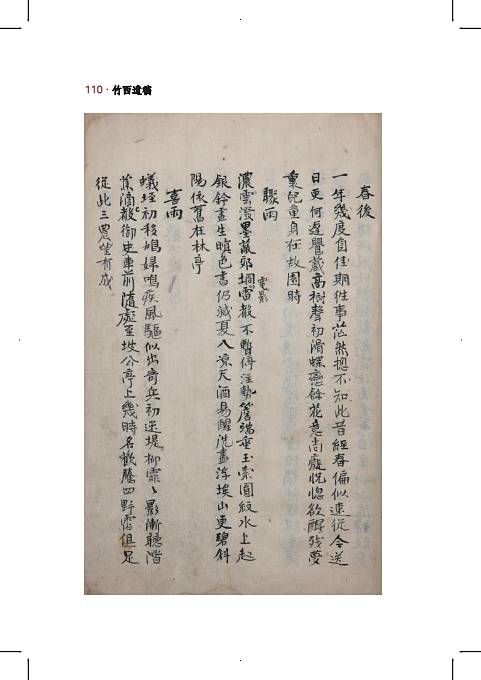 110 · 竹西遺稿
春後
一年幾度負佳期往事茫然摠不知此昔經春偏似速從今送
日更何遲鸎藏高樹聲初滑蝶戀餘花意尚癡怳惚欲醒殘夢
裏兒童身在故園時
驟雨
濃雲潑墨蔽郊坰雷
電影
不暫停注勢簷端垂玉索圓紋水上起
銀鈴晝生暝色書仍減夏入凉天酒易醒洗盡浮埃山更碧斜
陽依舊在林亭
喜雨
蟻垤初移鳩婦鳴疾風驅似出奇兵初迷堤柳霏霏影漸聽階
蕉滴滴聲御史車前隨處至坡公亭上幾時名歡騰四野霑俱足
從此三農望有成